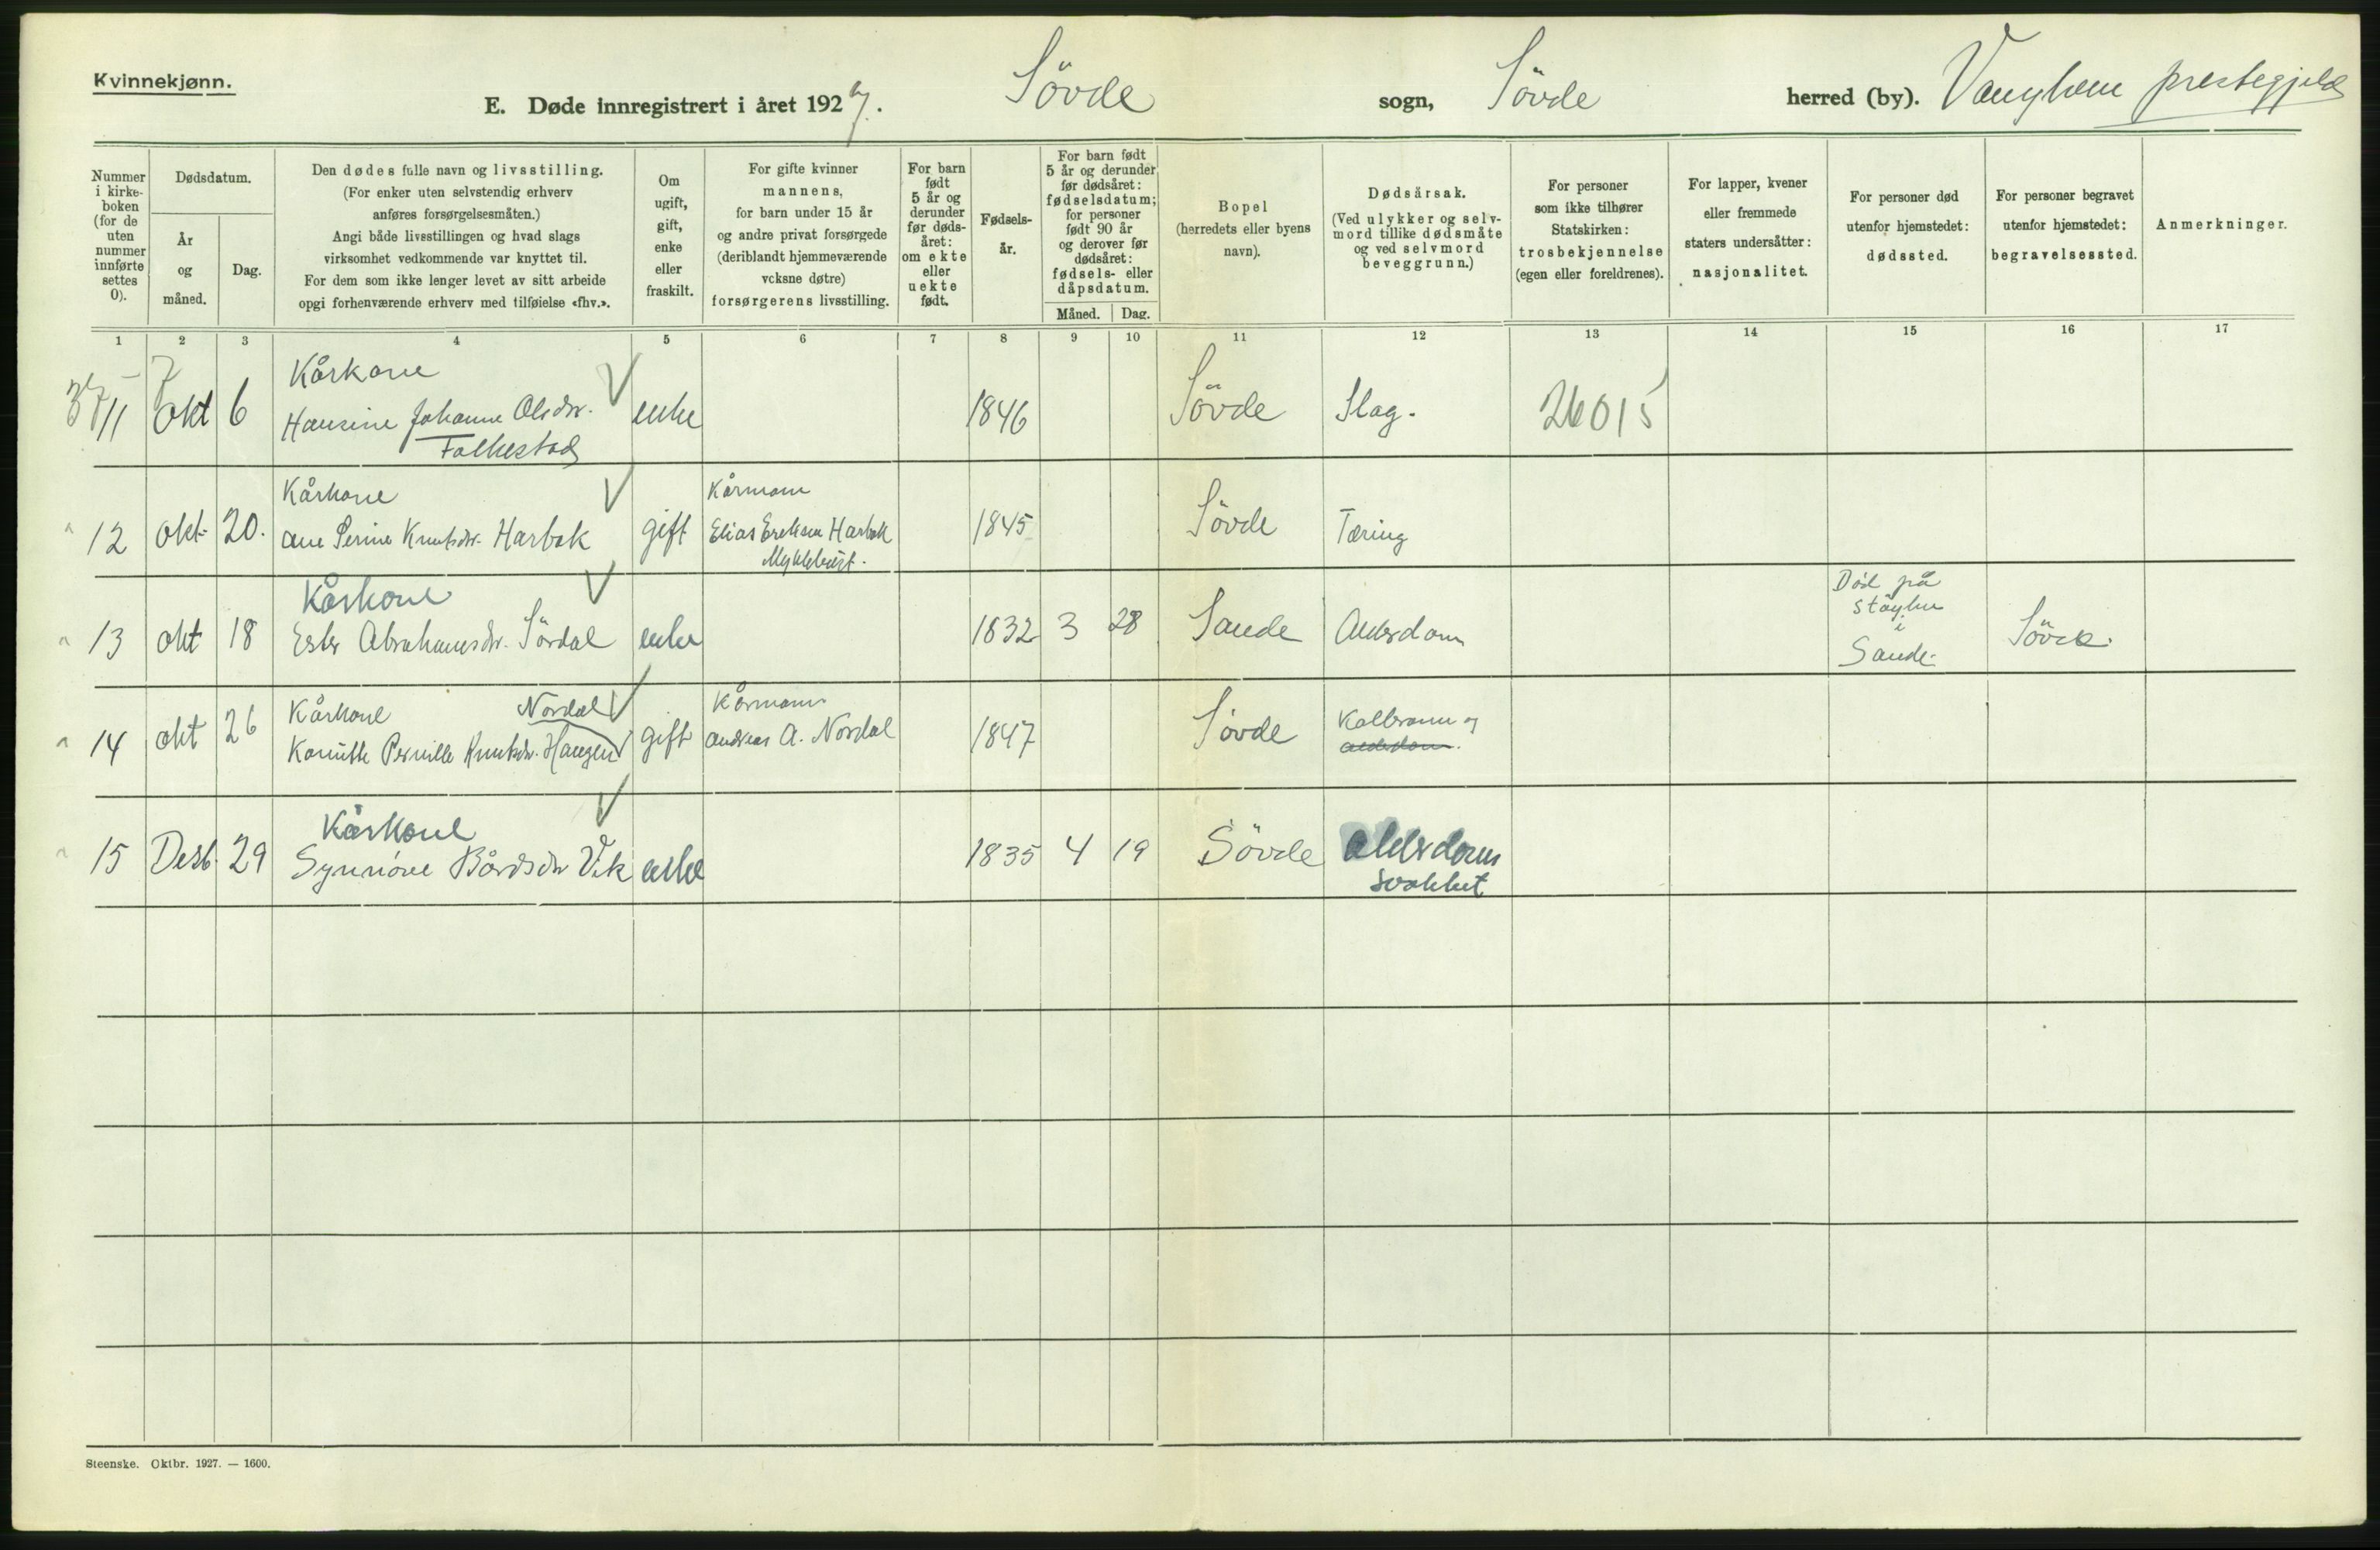 Kvinnekjønn.
E. Døde innregistrert i året 1927. Sövde sogn, Sövde herred (by). prestegjeld
Nummer i kirke- boken (for de uten nummer innførte settes 0).
Dødsdatum.
År og måned.
Dag.
Den dødes fulle navn og livsstilling.
(For enker uten selvstendig erhverv
anføres forsørgelsesmåten.)
Angi både livsstillingen og hvad slags
virksomhet vedkommende var knyttet til.
For dem som ikke lenger levet av sitt arbeide
opgi forhenværende erhverv med tilføielse «fhv.».
Om ugift, gift, enke eller fraskilt.
For gifte kvinner
mannens,
for barn under 15 år
og andre privat forsørgede
(deriblandt hjemmeværende
vcksne døtre)
forsørgerens livsstilling.
For barn født 5 år og derunder før døds- året: om ekte eller uekte født.
Fødsels- år.
For barn født
5 år og derunder
før dødsåret:
fødselsdatum;
for personer
født 90 år
og derover før
dødsåret:
fødsels- eller
dåpsdatum.
Måned. Dag.
Bopel
(herredets eller byens
navn).
Dødsårsak.
(Ved ulykker og selv-
mord tillike dødsmåte
og ved selvmord
beveggrunn.)
For personer
som ikke tilhører
Statskirken:
trosbekjennelse
(egen eller foreldrenes).
For lapper, kvener
eller fremmede
staters undersåtter:
nasjonalitet.
For personer død
utenfor hjemstedet:
dødssted.
For personer begravet
utenfor hjemstedet:
begravelsessted.
Anmerkninger.
1 2 3 4 5 6 7 8 9 10 11 12 13 14 15 16 17
Kårkone
11 okt 6 Hansine Johanne Olsdtr. enke 1846 Sövde Slag. 26015
Folkestad
Kårkone Kårmann
12 okt. 20. Ane Perine Knutsdtr. Harbak gift Elias Eriksen Harbak 1845 Sövde Tæring
Myklebust.
Kårkone Död på
13 okt 18 Ester Abrahamsdtr. Sördal enke 1832 3 28 Sande Alderdom i Sande. Sövde.
Kårkone Nordal Kårmann
14 okt 26 Pernille Knutsdtr. Haugen gift Andreas A. Nordal 1847 Sövde Koldbrann og
alderdom.
Kårkone
15 Desb. 29 Synnöve Bårdsdtr Vik enke 1835 4 19 Sövde Alderdoms
svakhet
Steenske. Oktbr. 1927. — 1600.